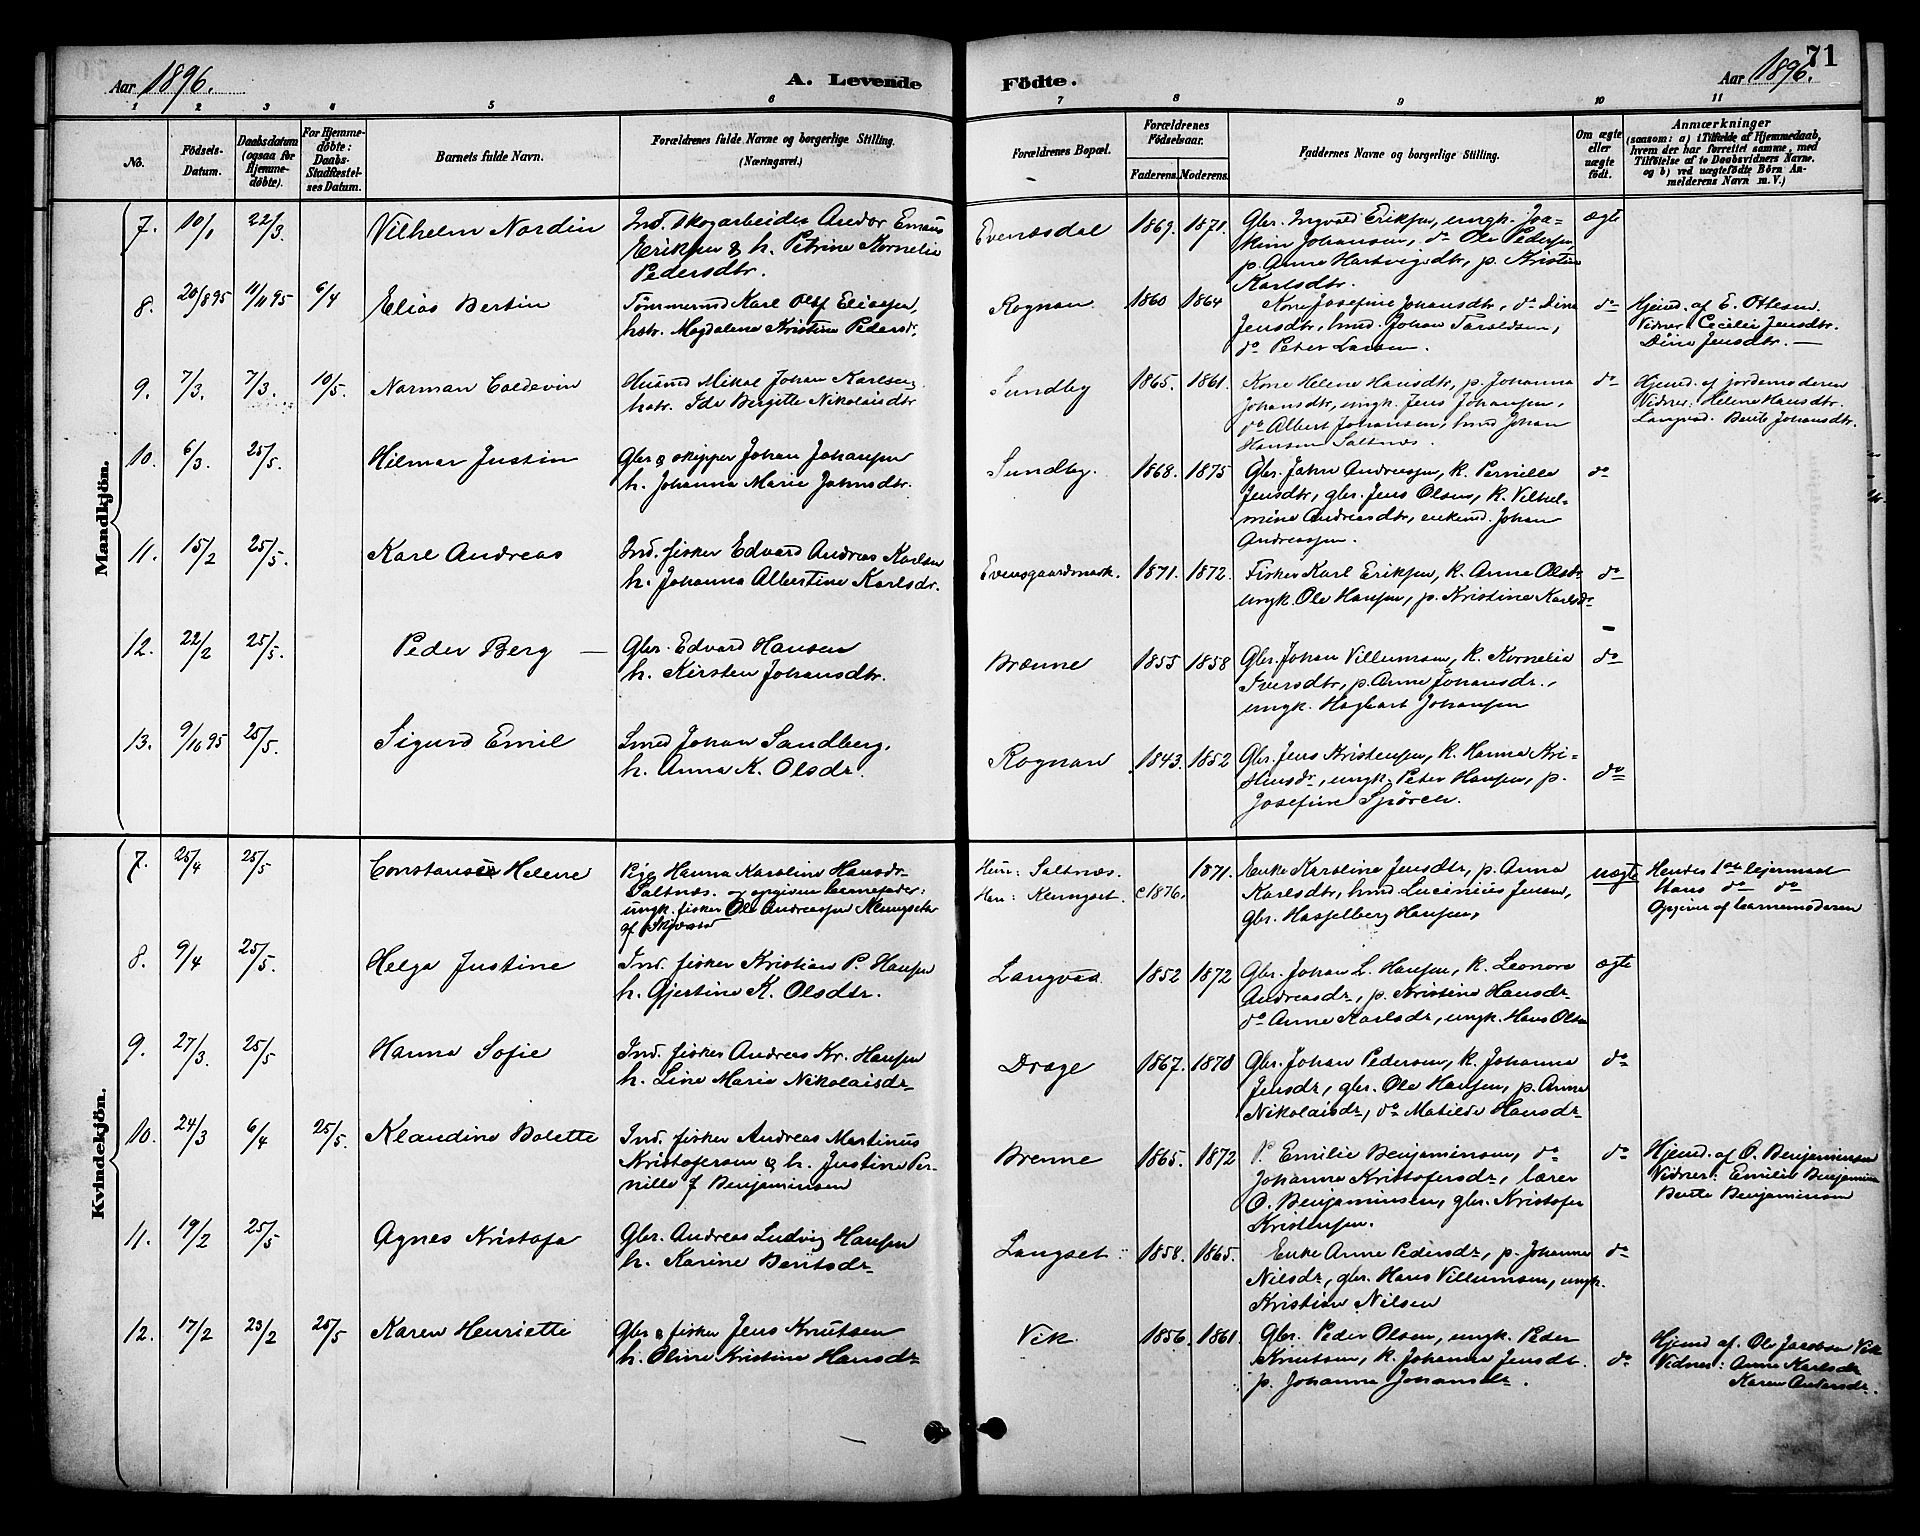 71
Aar 1896.
A. Levende
Födte.
Aar 1896.
1 2 3 4 5 6 7 8 9 10 11
No.
Födsels-
Datum.
Daabsdatum
(ogsaa for
Hjemme-
döbte).
For Hjemme-
döbte:
Daabs-
Stadfæstel-
ses Datum.
Barnets fulde Navn.
Forældrenes fulde Navne og borgerlige Stilling.
(Næringsvei.)
Forældrenes Bopæl.
Forældrenes
Födselsaar.
Faderens. Moderens.
Faddernes Navne og borgerlige Stilling.
Om ægte
eller
uægte
födt.
Anmærkninger
(saasom: a) i Tilfælde af Hjemmedaab,
hvem der har forrettet samme, med
Tilföielse af to Daabsvidners Navne.
og b) ved uægtefödte Börn An-
melderens Navn m. V.)
Mandkjön.
7. 10/1 22/3. Vilhelm Nordin
Ind. skogarbeider Andor Emaus
Eriksen & h. Petrine Kornelia
Pedersdtr.
Evensdal 1869. 1871.
Gbr. Ingvald Eriksen, ungk. Joa-
kim Johansen, do Ole Pedersen,
p. Anna Hartvigsdtr, p. Kristine
Karlsdtr.
ægte
8. 20/8 95 11/11 95 6/4 Elias Bertin
Tømmermd Karl Olaf Eliasen,
hstr. Magdalena Kristine Pedersdr.
Rognan 1860 1864
Kone Josefine Johansdtr, do Dina
Jensdtr, hmd. Johan Taraldsen,
do Peter Larsen.
do
Hjemd. af E. Ottesen.
Vidner: Cecilie Jensdtr.
Dina Jensdtr. —
9. 7/3. 7/3. 10/5. Norman Coldevin
Husmd Mikal Johan Karlsen,
hstr. Ida Bergitte Nikolaisdtr
Sundby 1865. 1861.
Kone Helene Hansdtr, p. Johanna
Johansdtr, ungk. Jens Johansen,
do Albert Johansen, hmd Johan
Hansen Saltnæs.
do
Hjemd. af jordemoderen
Vidner: Helene Hansdtr.
Langvad. Berte Johansdtr.
10. 6/3. 25/5. Hilmar Justin
Gbr & skipper Johan Johansen
h. Johanna Marie Jahnsdtr.
Sundby. 1868. 1875
Gbr. Jahn Andreassen, k. Pernille
Jensdtr, gbr. Jens Olsen, k. Vilhel-
mine Andreasdtr, enkemd. Johan
Andreassen.
do
11. 15/2 25/5. Karl Andreas
Ind. fisker Edvard Andreas Karlsen
h. Johanna Albertine Karlsdr.
Evensgaardmark. 1871. 1872.
Fisker Karl Eriksen, k. Anna Olsdr
ungk. Ole Hansen, p. Kristine Karlsdr
do
12. 22/2 25/5. Peder Berg —
Gbr. Edvard Hansen
h. Kirsten Johansdtr.
Brænne 1855 1858
Gbr. Johan Villumsen, k. Kornelia
Iversdtr, p. Anne Johansdr.,
ungk. Hagbart Johansen
do
13. 9/10 95 25/5. Sigurd Emil
Smed Johan Sandberg,
h. Anna K. Olsdr.
Rognan 1843. 1852
Gbr. Jens Kristensen, k. Hanna Kri-
stensdr, ungk. Peter Hansen, p.
Josefine Spörck.
do
Kvindekjön.
7. 25/4 25/5 Constanse Helene
Pige Hanna Karoline Hansdr
Saltnæs. og opgiven barnefader:
ungk. fisker Ole Andreassen Klungset
af Skjerstad
Hun: Saltnæs.
Han: Klungset. c1876. 1871.
Enke Karoline Jensdtr, p. Anna
Karlsdtr, hmd Lucinius Jensen,
gbr. Hasselberg Hansen,
uægte
Hendes 1ste lejermaal
Hans do do
Opgiver af barnemoderen
8. 9/4 25/5. Helga Justine
Ind. fisker Kristian P. Hansen
h. Gjertine K. Olsdtr.
Langvad 1852 1872
Gbr. Johan L. Hansen, k. Leonora
Andreasdr, p. Kristine Hansdr
do Anne Karlsdr, ungk. Hans Olsen
ægte
9. 27/3. 25/5 Hanna Sofie
Ind. fisker Andreas Kr. Hansen
h. Line Marie Nikolaisdr
Drage 1867. 1870
Gbr. Johan Pedersen, k. Johanna
Jensdr, gbr. Ole Hansen, p. Anna
Nikolaisdr, do Matilde Hansdr
do
10. 24/3 6/4 25/5. Klaudine Bolette
Ind. fisker Andreas Martinus
Kristofersen & h. Justine Per-
nille f Benjaminsen
Brenne 1865. 1872
P. Emilie Benjaminsen, do
Johanna Kristofersdr, lærer
O. Benjaminsen, gbr. Kristofer
Kristensen.
do
Hjemd. af O. Benjaminsen
Vidner: Emilie Benjamins
Berte Benjaminsen
11. 19/2 25/5 Agnes Kristofa
Gbr. Andreas Ludvig Hansen
h. Karine Bentsdr
Langset 1858. 1865.
Enke Anne Pedersdr, p. Johanna
Nilsdr, gbr. Hans Villumsen, ungk.
Kristian Nilsen
do
12. 17/2 23/2 25/5 Karen Henriette
Gbr & fisker Jens Knutsen
h. Oline Kristine Hansdr
Vik 1856. 1861.
Gbr. Peder Olsen, ungk. Peder
Knutsen, k. Johanna Jensdt.
p. Johanna Johansdr.
do
Hjemd af. Ole Jacobsen Vik
Vidner: Anna Karlsdr
Karen Andersdr.